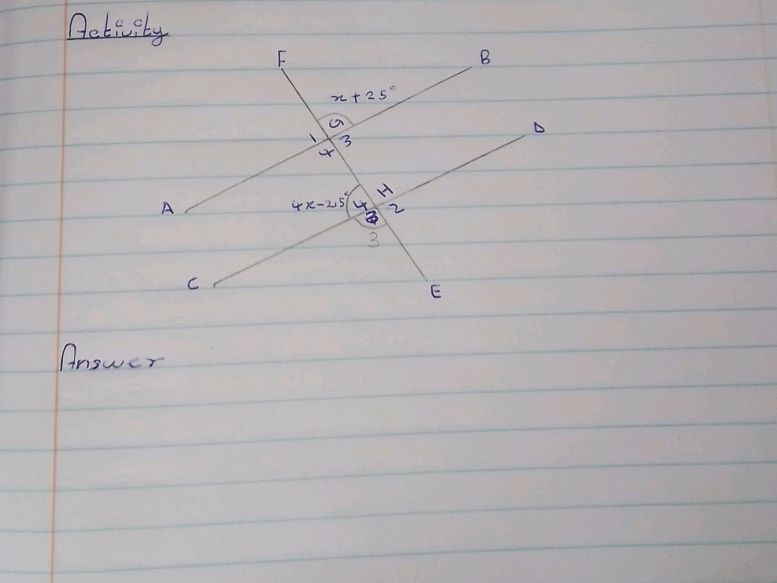 Activity
F
B
x + 25°
G
1
3
4
D
H
A
4x - 25°
4
2
3
C
E
Answer